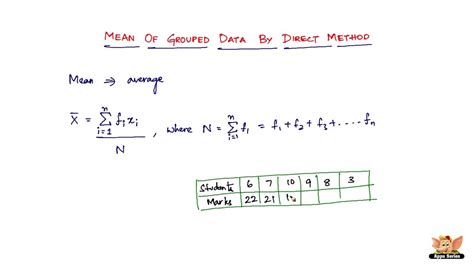 MEAN OF GROUPED DATA BY DIRECT METHOD
Mean ⇒ average
X̄ = Σ(i=1 to n) fᵢxᵢ / N , where N = Σ(i=1 to n) f₁ = f₁ + f₂ + f₃ + .... fₙ
Students 6 7 10 9 8 3
Marks 22 21
Appu Series